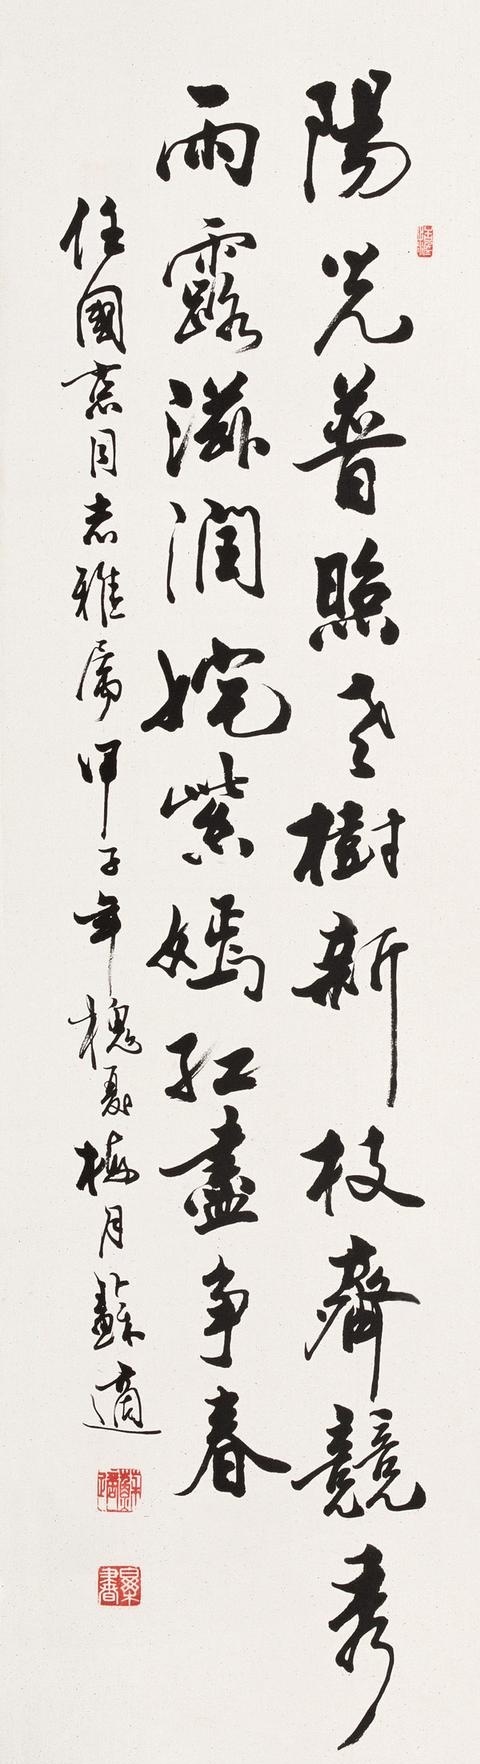 陽光普照老樹新枝齊競秀
雨露滋潤姹紫嫣紅盡争春
任國同志雅屬甲子年槐夏梅月蘇適
蘇適